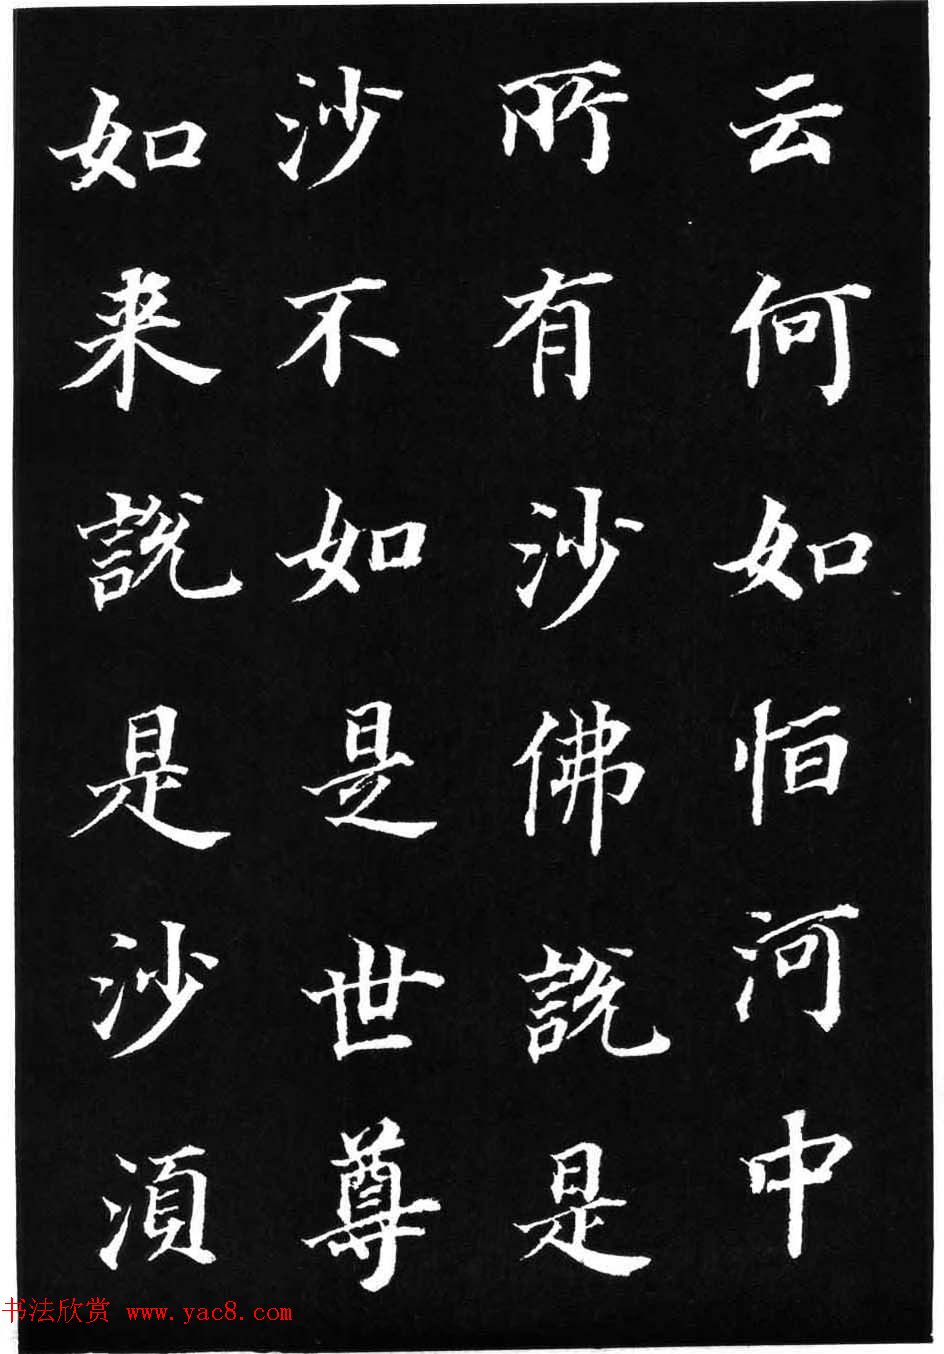 云何如恒河中
所有沙佛說是
沙不如是世尊
如来說是沙湏
书法欣赏 www.yac8.com